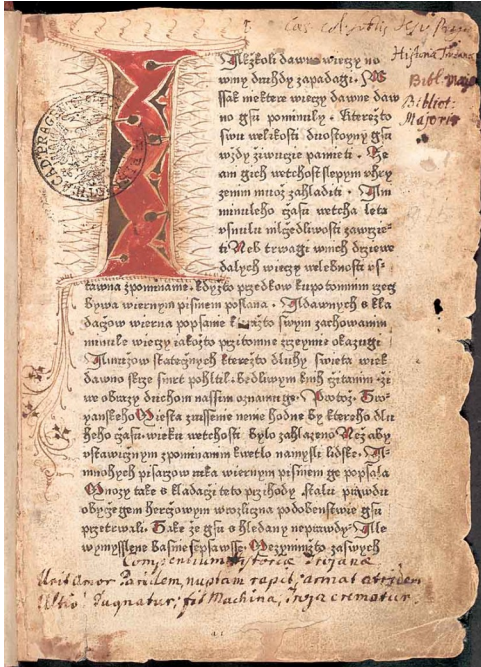 Historia Trojana
Bibl. Maj.
Bibliot.
Majoris
Ačkžkoli dawno wieczy no
winy druhdy zapadagi. W
ssak niektere wieczy dawne daw
no gsu pominuly. Kterezto
swu welikosti duostoyny gsu
wzdy ziwucie pamieti. Ze
am gich wetchost slepym uhry
zenim muoz zahladiti. Ani
minuleho czasu wetcha leta
usnulu mlczedliwosti zawrzie
ti Neb trwagi wnich drziewe
dalych wieczy welebnosti us
tawna zpominanie. kdyzto przedkow kupotomnim rzecz
bywa wiernym pisniem poslana. A dawnych skla
daczow wierna popsanie kterazto swym zachowanim
minule wieczy iakozto przitomne zrzeymie okazugi
A muzow stateczných kterezto dluhy swieta wiek
dawno skrze smrt pohltil. bedliwym knih czitanim zi
we obrazy duchom nassim oznamuge. Protoz Tro
yanskeho Miesta zrussenie nenie hodne by ktereho dlu
heho czasu wieku wetchosti bylo zahlazeno Nez aby
ustawicznym zpominanim kwetlo namysli lidske. A
mnohych pisarzow ruka wiernym pisniem ge popsala
Mnozy take skladaczi teto przihody stalu prawdu
obyczegem herczowym wrozliczna podobenstwie gsu
przetrwali. Take ze gsu shledany neprawdy. Ale
wymysslene basnie sepsawsse. Mezy nimizto zaswych
Compendium Historiae Trojanae
Urit Amor Paridem, nuptam rapit, armat Atriden
Ultio: Pugnatur; fit Machina, Troja crematur.